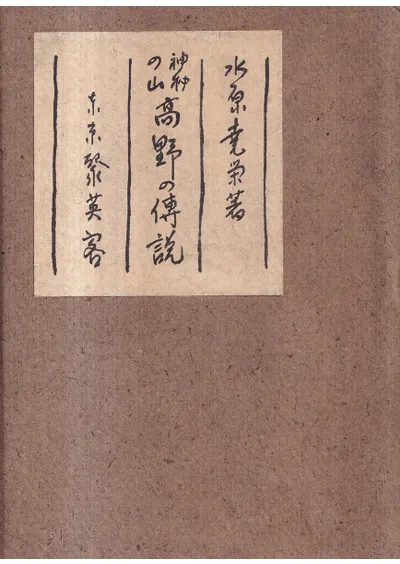 水原堯栄著
神秘の山 高野の傳説
東京 聚英客